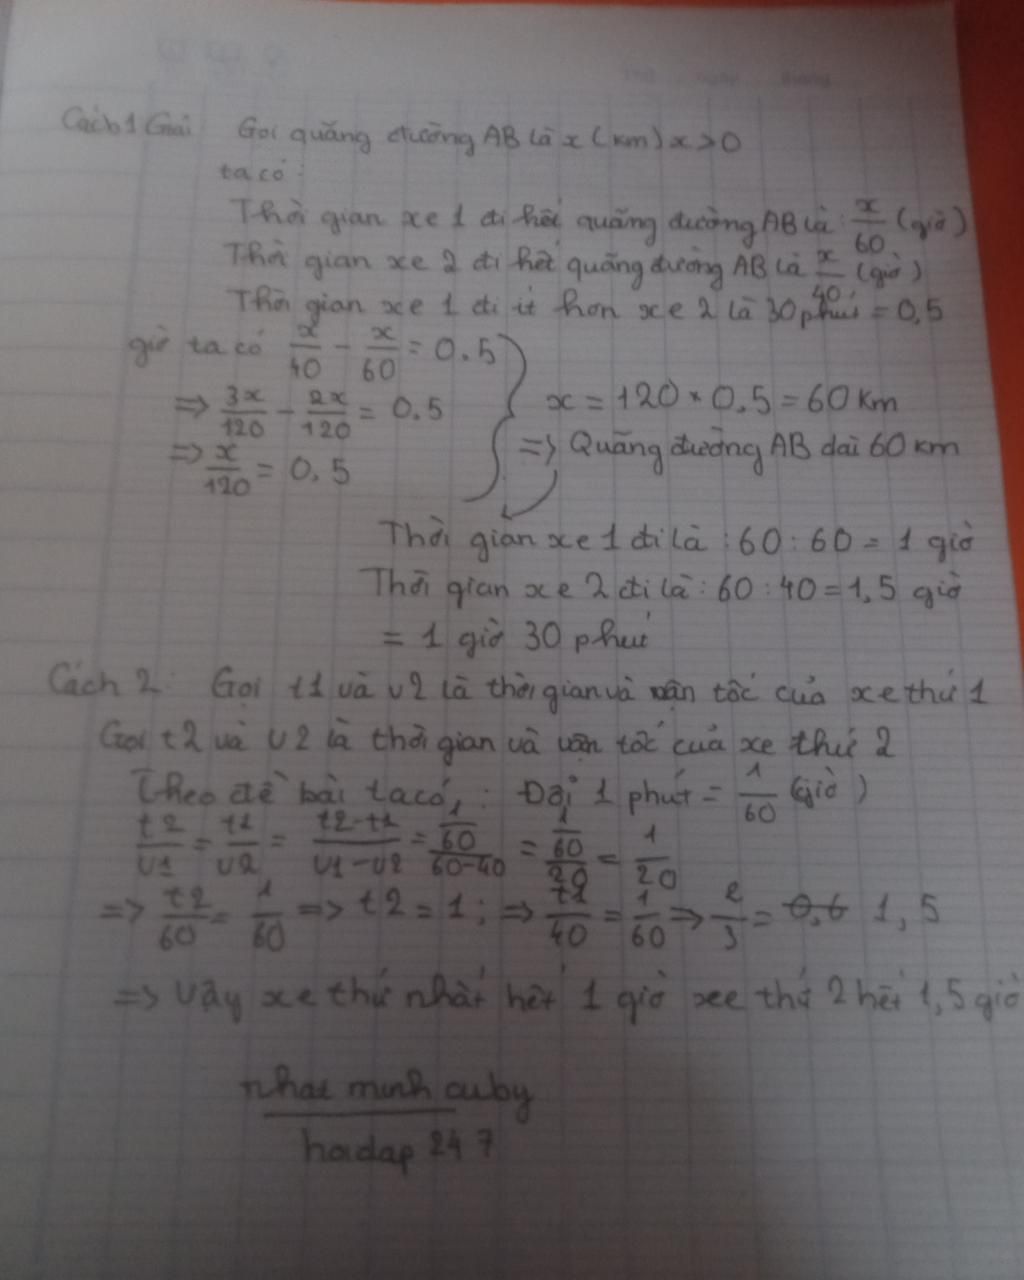 Cách 1 Giải Gọi quãng đường AB là x (km) x > 0
ta có:
Thời gian xe 1 đi hết quãng đường AB là: x/60 (giờ)
Thời gian xe 2 đi hết quãng đường AB là x/40 (giờ)
Thời gian xe 1 đi ít hơn xe 2 là 30 phút = 0,5
giờ ta có x/40 - x/60 = 0.5
=> 3x/120 - 2x/120 = 0.5
=> x/120 = 0,5
x = 120 × 0,5 = 60 km
=> Quãng đường AB dài 60 km
Thời gian xe 1 đi là : 60 : 60 = 1 giờ
Thời gian xe 2 đi là : 60 : 40 = 1,5 giờ
= 1 giờ 30 phút
Cách 2: Gọi t1 và v2 là thời gian và vận tốc của xe thứ 1
Gọi t2 và v2 là thời gian và vận tốc của xe thứ 2
Theo đề bài ta có: Đổi 1 phút = 1/60 (giờ)
t2/v1 = t1/v2 = (t2-t1)/(v1-v2) = (1/60)/(60-40) = (1/60)/20 = 1/20
=> t2/60 = 1/60 => t2 = 1; => t2/40 = 1/60 => 2/3 = 0,6 1,5
=> Vậy xe thứ nhất hết 1 giờ xee thứ 2 hết 1,5 giờ
nhat minh cuby
hoidap 247